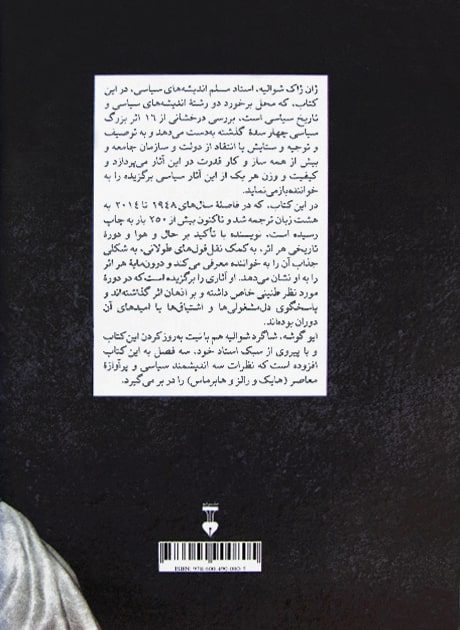 ژان ژاک شوالیه، استاد مسلم اندیشه‌های سیاسی، در این
کتاب، که محل برخورد دو رشتهٔ اندیشه‌های سیاسی و
تاریخ سیاسی است، بررسی درخشانی از ۱۶ اثر بزرگ
سیاسی چهار سدهٔ گذشته به‌دست می‌دهد و به توصیف
و توجیه و ستایش یا انتقاد از دولت و سازمان جامعه و
بیش از همه ساز و کار قدرت در این آثار می‌پردازد و
کیفیت و وزن هر یک از این آثار سیاسی برگزیده را به
خواننده بازمی‌نماید.
در این کتاب، که در فاصلهٔ سال‌های ۱۹۴۸ تا ۲۰۱۴ به
هشت زبان ترجمه شد و تاکنون بیش از ۲۵۰ بار به چاپ
رسیده است، نویسنده با تأکید بر حال و هوا و دورهٔ
تاریخی هر اثر، به کمک نقل‌قول‌های طولانی، به شکلی
جذاب آن را به خواننده معرفی می‌کند و درون‌مایهٔ هر اثر
را به او نشان می‌دهد. او آثاری را برگزیده است که در دورهٔ
مورد نظر طنینی خاص داشته و بر اذهان اثر گذاشته‌اند و
پاسخگوی دل‌مشغولی‌ها و اشتیاق‌ها یا امیدهای آن
دوران بوده‌اند.
ایو گوشه، شاگرد شوالیه هم با نیت به‌روز کردن این کتاب
و با پیروی از سبک استاد خود، سه فصل به این کتاب
افزوده است که نظرات سه اندیشمند سیاسی و پرآوازهٔ
معاصر (هایک و رالز و هابرماس) را در بر می‌گیرد.
ISBN: 978-600-490-000-3